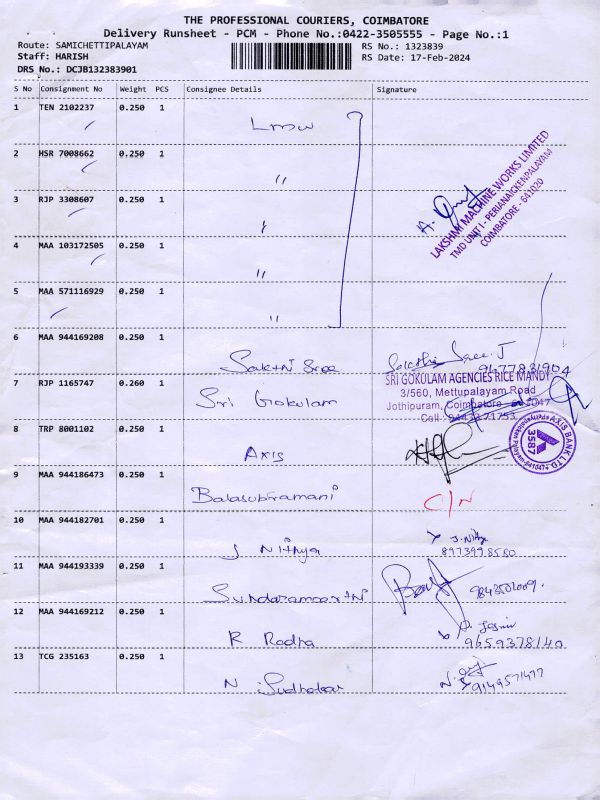 THE PROFESSIONAL COURIERS, COIMBATORE
Delivery Runsheet - PCM - Phone No.:0422-3505555 - Page No.:1
Route: SAMICHETTIPALAYAM
RS No.: 1323839
Staff: HARISH
RS Date: 17-Feb-2024
DRS No.: DCJB132383901
S No Consignment No Weight PCS Consignee Details Signature
1 TEN 2102237 0.250 1
Lmw
2 HSR 7008662 0.250 1
"
3 RJP 3308607 0.250 1
4 MAA 103172505 0.250 1
"
5 MAA 571116929 0.250 1
"
LAKSHMI MACHINE WORKS LIMITED
TMD UNIT I - PERIANAICKENPALAYAM
COIMBATORE - 641020
6 MAA 944169208 0.250 1
Sakthi Sree Sakthi Sree. J
9477831904
7 RJP 1165747 0.260 1
Sri Gokulam
SRI GOKULAM AGENCIES RICE MANDY
3/560, Mettupalayam Road
Jothipuram, Coimbatore - 641047
Cell
8 TRP 8001102 0.250 1
Axis
AXIS BANK LTD
3587
9 MAA 944186473 0.250 1
Balasubramani C/N
10 MAA 944182701 0.250 1
J Nithya J. Nithya
11 MAA 944193339 0.250 1
Sundaramoorthi
12 MAA 944169212 0.250 1
R Radha
9659378140
13 TCG 235163 0.250 1
N Sudhakar
9149571477